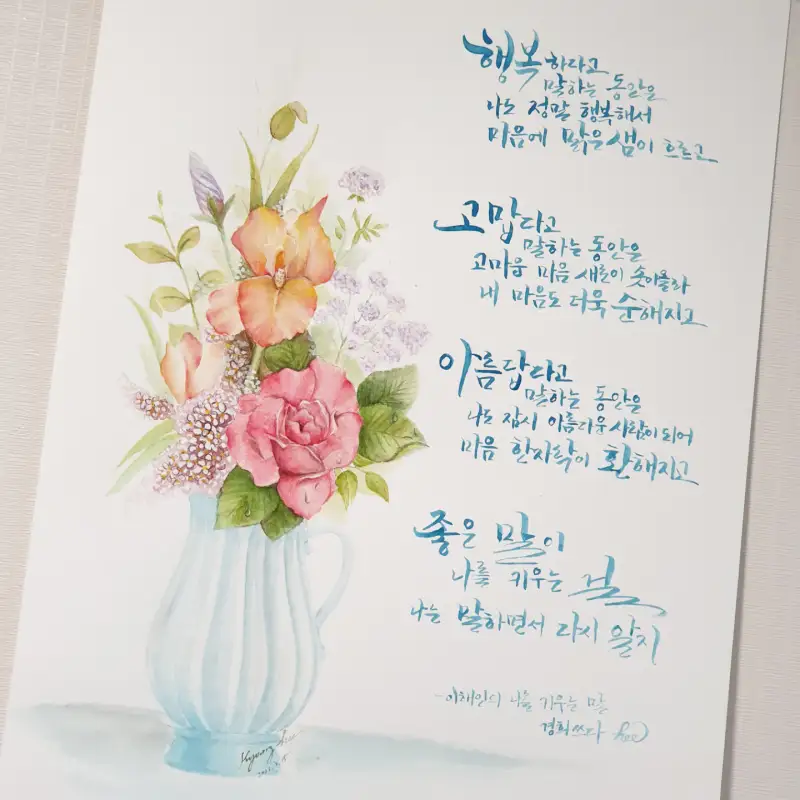 행복하다고
말하는 동안은
나도 정말 행복해서
마음에 맑은 샘이 흐르고
고맙다고
말하는 동안은
고마운 마음 새로이 솟아올라
내 마음도 더욱 순해지고
아름답다고
말하는 동안은
나도 잠시 아름다운 사람이 되어
마음 한자락이 환해지고
좋은 말이
나를 키우는 걸
나는 말하면서 다시 알지
나를 키우는 말
경희쓰다
Kyung hee